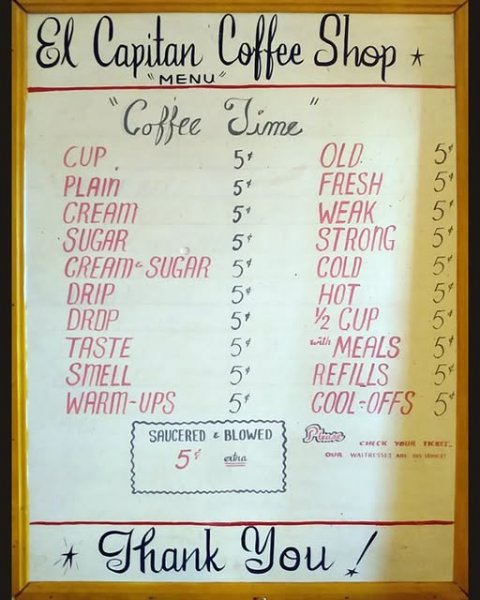 El Capitan Coffee Shop
"MENU"
"Coffee Time"
CUP 5¢
PLAIN 5¢
CREAM 5¢
SUGAR 5¢
CREAM & SUGAR 5¢
DRIP 5¢
DROP 5¢
TASTE 5¢
SMELL 5¢
WARM-UPS 5¢
OLD 5¢
FRESH 5¢
WEAK 5¢
STRONG 5¢
COLD 5¢
HOT 5¢
½ CUP 5¢
with MEALS 5¢
REFILLS 5¢
COOL-OFFS 5¢
SAUCERED & BLOWED
5¢ extra
Please CHECK YOUR TICKET
OUR WAITRESSES ARE
Thank You!